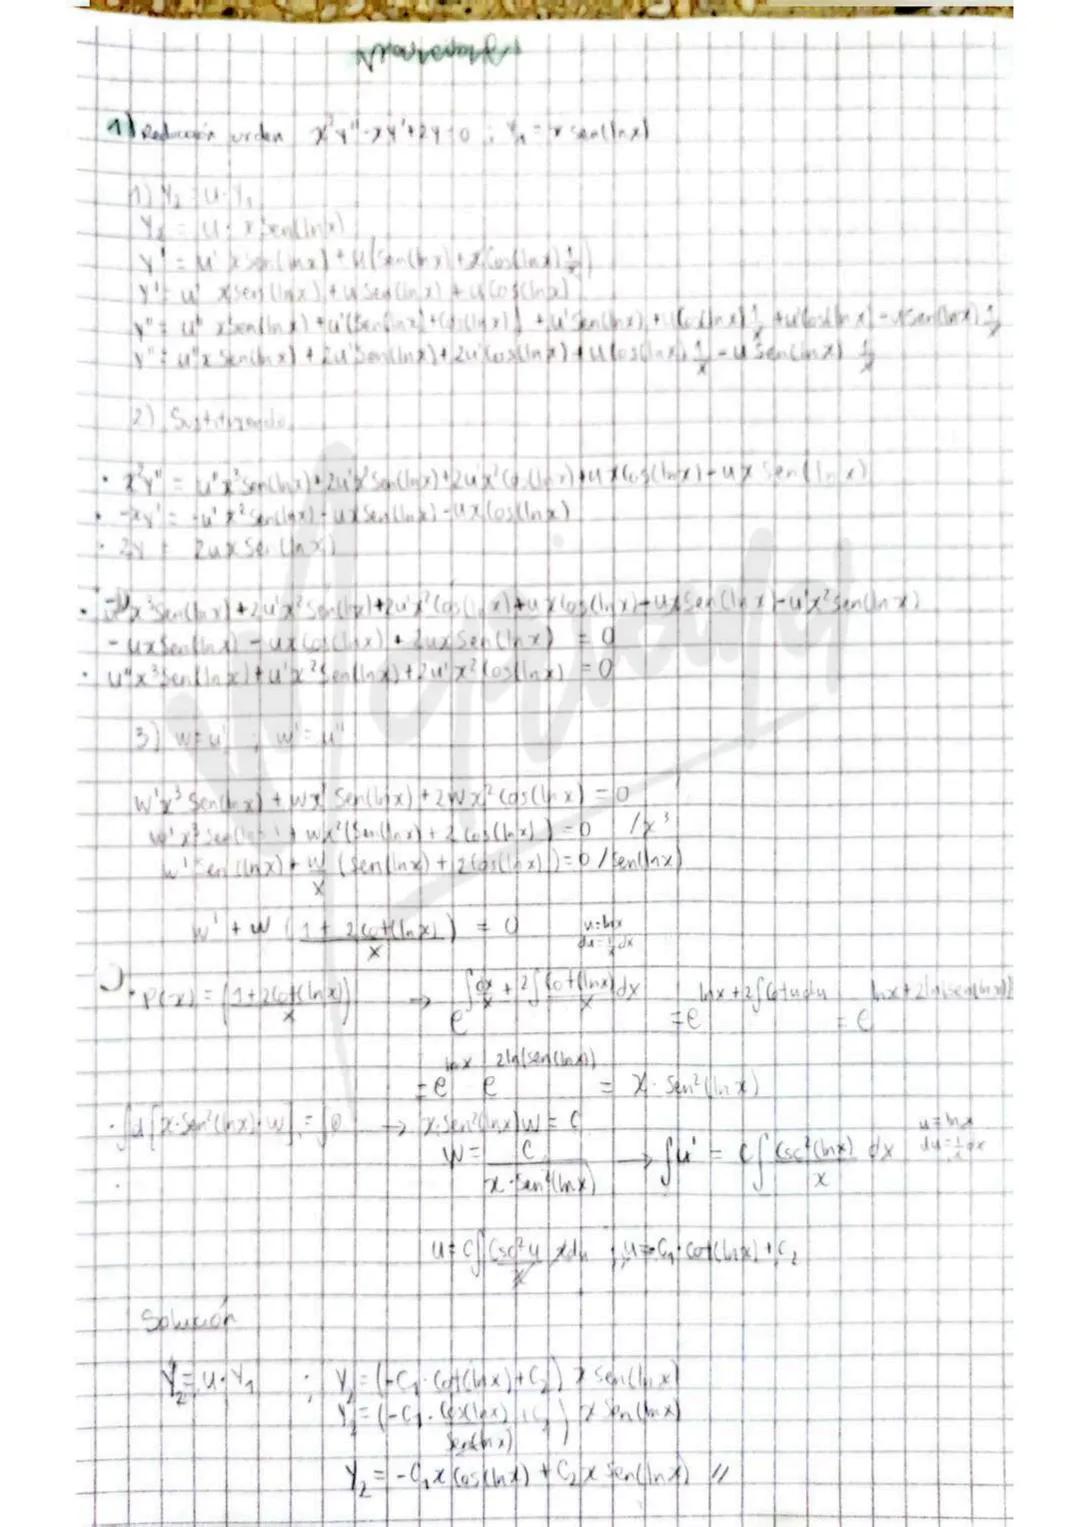 1) Reducción orden x²y"-xy'+2y=0 ; y₁ = x sen(lnx)
1) Y₂ = u·Y₁
Y₂ = u · x sen(lnx)
Y' = u' x sen(lnx) + u(sen(lnx) + x Cos(lnx) 1/x)
Y' = u' x sen(lnx) + u sen(lnx) + u Cos(lnx)
Y" = u" x sen(lnx) + u'(sen(lnx) + Cos(lnx)) + u' sen(lnx) + u Cos(lnx) 1/x + u' Cos(lnx) - u sen(lnx) 1/x
Y" = u"x sen(lnx) + 2u' sen(lnx) + 2u' Cos(lnx) + u Cos(lnx) 1/x - u sen(lnx) 1/x
2) Sustituyendo
· x²y" = u"x³ sen(lnx) + 2u'x² sen(lnx) + 2u'x² Cos(lnx) + u x Cos(lnx) - ux sen(lnx)
· -xy' = -u' x² sen(lnx) - ux sen(lnx) - ux Cos(lnx)
· 2y = 2ux sen(lnx)
· u"x³ sen(lnx) + 2u'x² sen(lnx) + 2u'x² Cos(lnx) + ux Cos(lnx) - ux sen(lnx) - u'x² sen(lnx)
- ux sen(lnx) - ux Cos(lnx) + 2ux sen(lnx) = 0
· u"x³ sen(lnx) + u'x² sen(lnx) + 2u'x² Cos(lnx) = 0
3) w=u' ; w'=u"
w'x³ sen(lnx) + wx² sen(lnx) + 2wx² cos(lnx) = 0
w'x³ sen(lnx) + wx²(sen(lnx) + 2 cos(lnx)) = 0 /x³
w' sen(lnx) + w/x (sen(lnx) + 2cos(lnx)) = 0 /sen(lnx)
w' + w (1 + 2cot(lnx) / x) = 0 u=lnx du=1/x dx
· P(x) = (1+2cot(lnx) / x) → e^(∫dx/x + 2∫cot(lnx)/x dx) = e^(lnx+2∫cot u du) = e^(lnx+2ln(sen(lnx)))
= e^(lnx) e^(2ln(sen(lnx))) = x · sen²(lnx)
· ∫d[x·sen²(lnx)·w] = ∫0 → x·sen²(lnx)w = C u=lnx
w = C / x·sen²(lnx) → ∫u' = C∫ csc²(lnx)/x dx du=1/x dx
u = C∫ csc²u/x xdu ; u=-C₁·cot(lnx)+C₂
Solución
Y₂=u·Y₁ ; Y₂=(-C₁·cot(lnx)+C₂) x sen(lnx)
Y₂=(-C₁·cos(lnx)/sen(lnx) + C₂) x sen(lnx)
Y₂ = -C₁x Cos(lnx) + C₂x sen(lnx) //